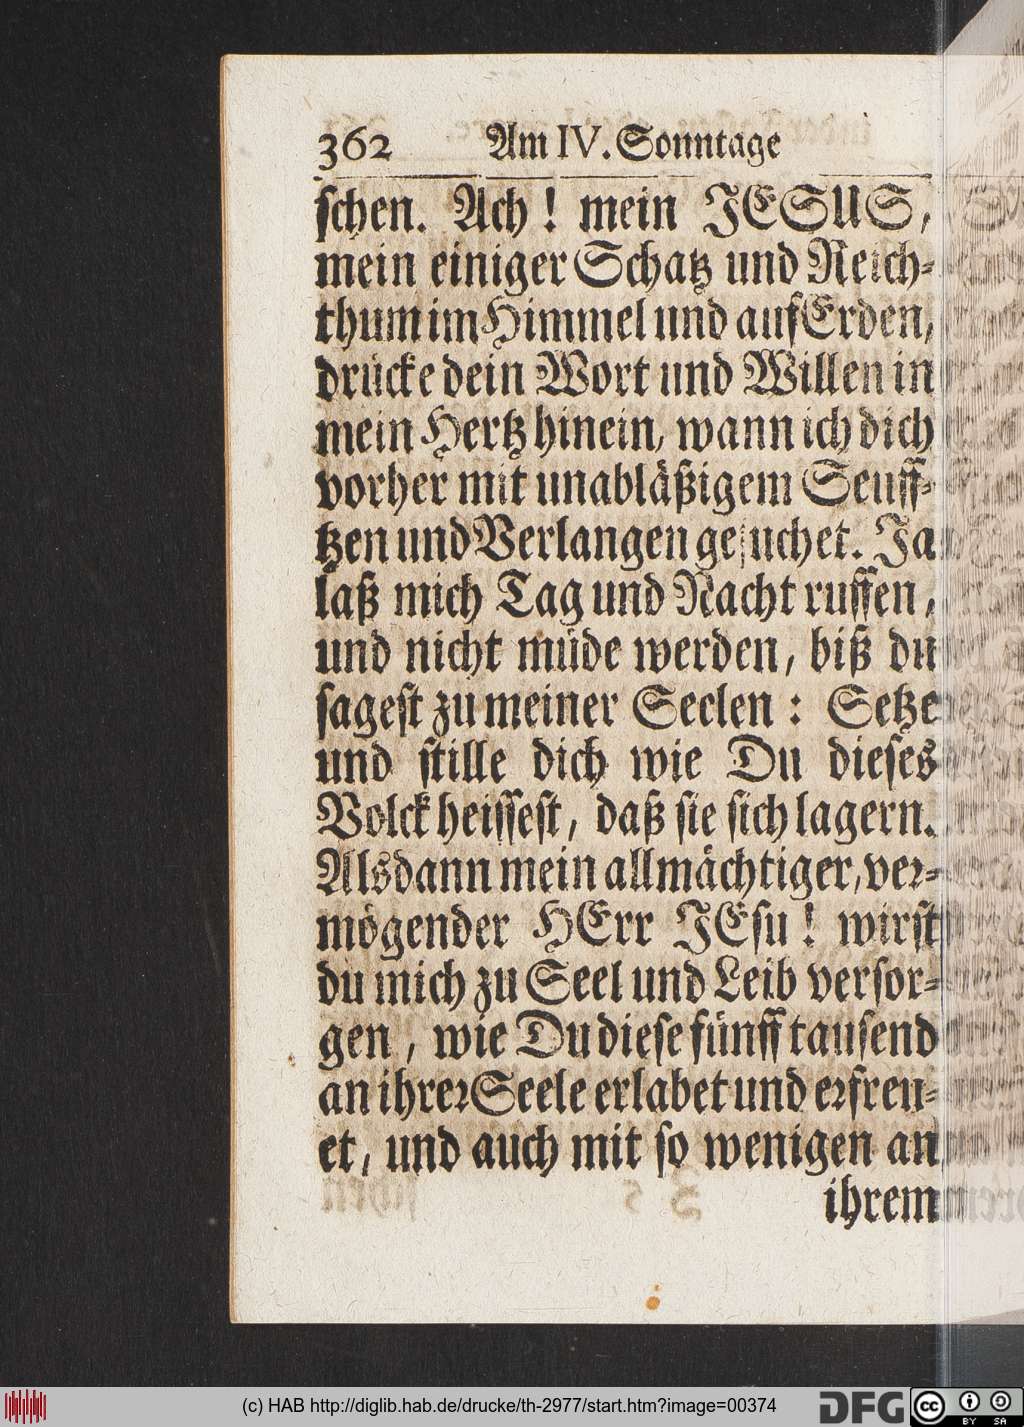 362 Am IV. Sonntage
ſchen. Ach! mein JESUS,
mein einiger Schatz und Reich-
thum im Himmel und auf Erden,
drücke dein Wort und Willen in
mein Hertz hinein, wann ich dich
vorher mit unabläßigem Seuff-
tzen und Verlangen geſuchet. Ja
laß mich Tag und Nacht ruffen,
und nicht müde werden, biß du
ſageſt zu meiner Seelen: Setze
und ſtille dich wie Du dieſes
Volck heiſſeſt, daß ſie ſich lagern.
Alsdann mein allmächtiger, ver-
mögender HErr JEſu! wirſt
du mich zu Seel und Leib verſor-
gen, wie Du dieſe fünff tauſend
an ihrer Seele erlabet und erfreu-
et, und auch mit ſo wenigen an
ihrem
(c) HAB http://diglib.hab.de/drucke/th-2977/start.htm?image=00374
DFG
CC BY SA